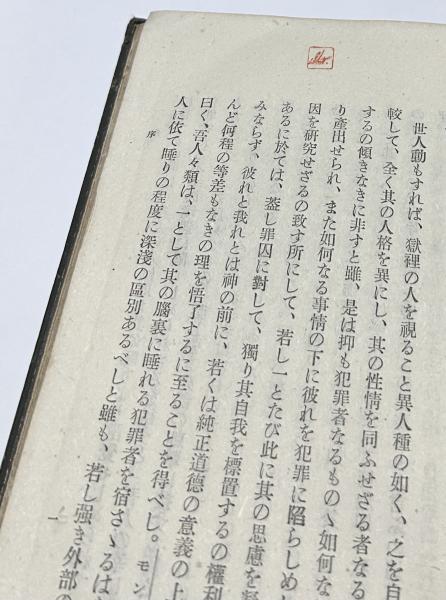 世人動もすれば、獄裡の人を視ること異人種の如く、之を自
較して、全く其の人格を異にし、其の性情を同ふせざる者なる
するの傾きなきに非ずと雖、是は抑も犯罪者なるものゝ如何な
り產出せられ、また如何なる事情の下に彼れを犯罪に陷らしめ
因を研究せざるの致す所にして、若し一とたび此に其の思慮を
あるに於ては、蓋し罪囚に對して、獨り其自我を標置するの權利
みならず、彼れと我れとは神の前に、若くは純正道德の意義の上
んど何程の等差もなきの理を悟了するに至ることを得べし。モン
曰く、吾人々類は、一として其の腦裏に睡れる犯罪者を宿さゝるは
人に依て睡りの程度に深淺の區別あるべしと雖も、若し强き外部の
序
一